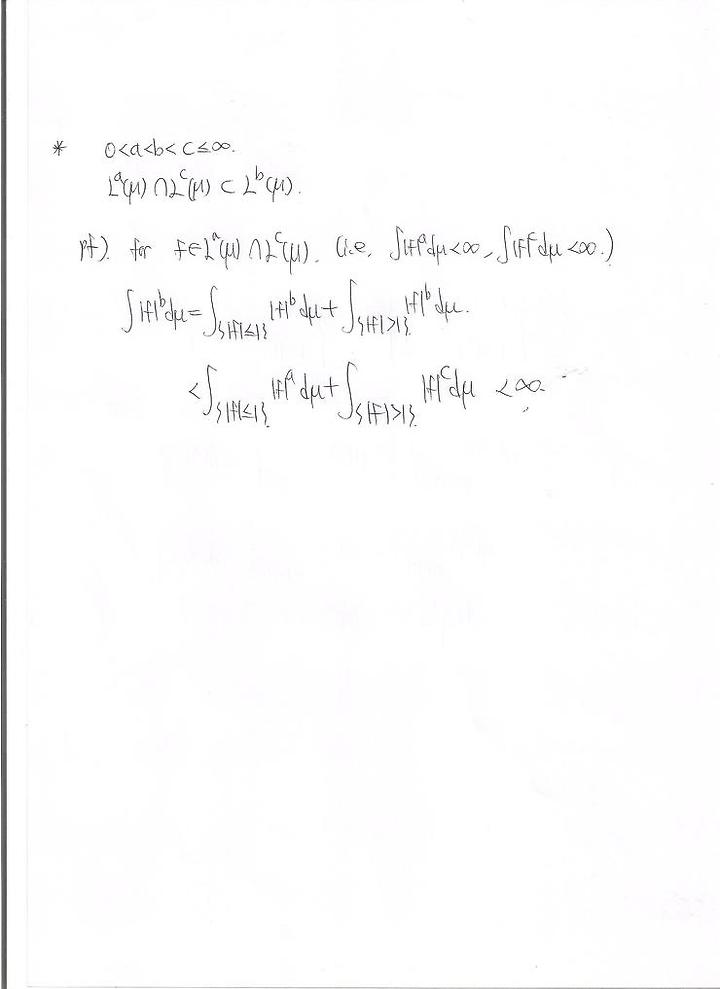 * 0<a<b<c≤∞.
L^a(μ) ∩ L^c(μ) ⊂ L^b(μ).
pf). for f∈L^a(μ) ∩ L^c(μ). (i.e, ∫|f|^a dμ<∞, ∫|f|^c dμ<∞.)
∫|f|^b dμ = ∫_{|f|≤1} |f|^b dμ + ∫_{|f|>1} |f|^b dμ.
< ∫_{|f|≤1} |f|^a dμ + ∫_{|f|>1} |f|^c dμ < ∞.